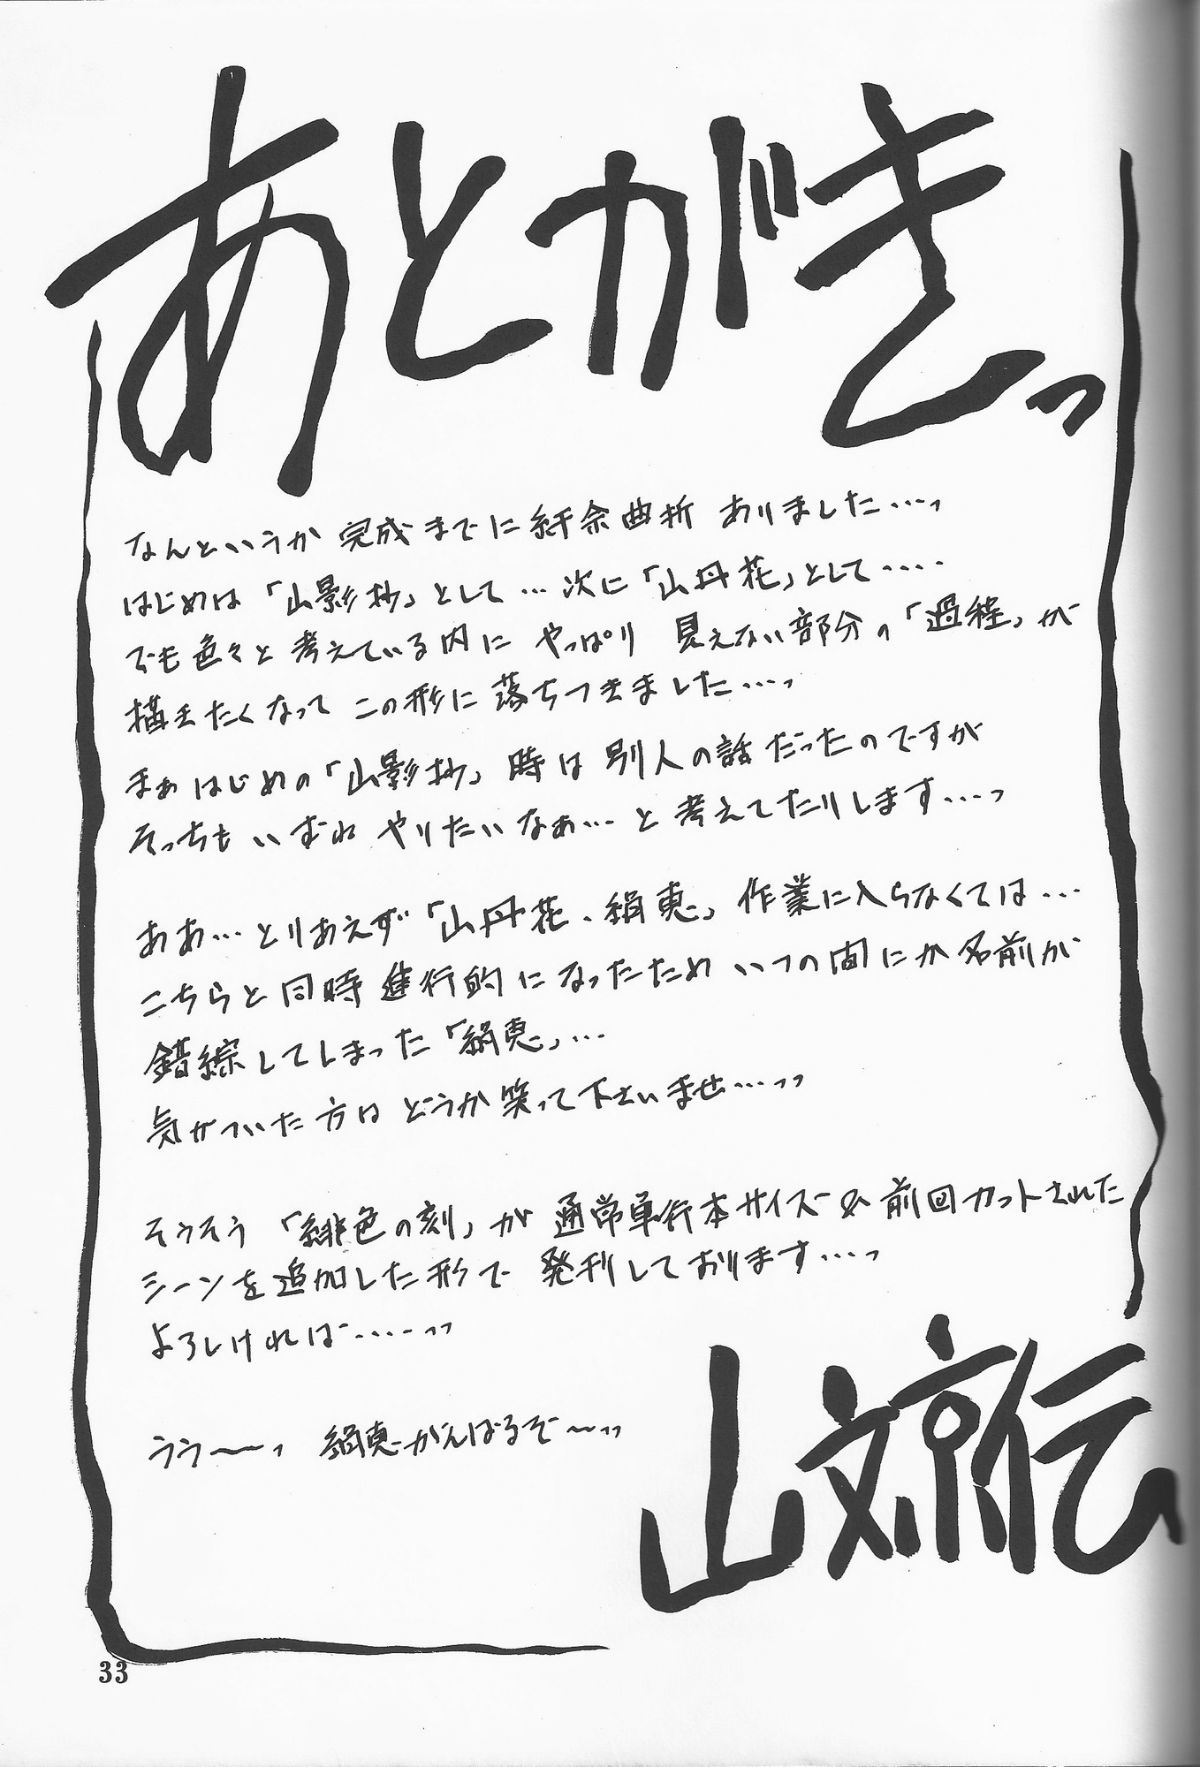 あとがきっ
なんというか 完成までに紆余曲折 ありました…っ
はじめは「山影抄」として…次に「山丹花」として‥‥
でも色々と考えている内に やっぱり 見えない部分の「過程」が
描きたくなって この形に落ちつきました…っ
まぁはじめの「山影抄」時は別人の話だったのですが
そっちもいずれ やりたいなぁ…と考えてたりします…っ
ああ…とりあえず「山丹花・絹恵」作業に入らなくては…
こちらと同時進行的になったため いつの間にか名前が
錯綜してしまった「絹恵」…
気がついた方は どうか笑って下さいませ…っっ
そうそう「緋色の刻」が 通常単行本サイズ&前回カットされた
シーンを追加した形で 発刊しております…っ
よろしければ‥‥っっ
うう〜っ 絹恵がんばるぞ〜っっ
山文京伝
33